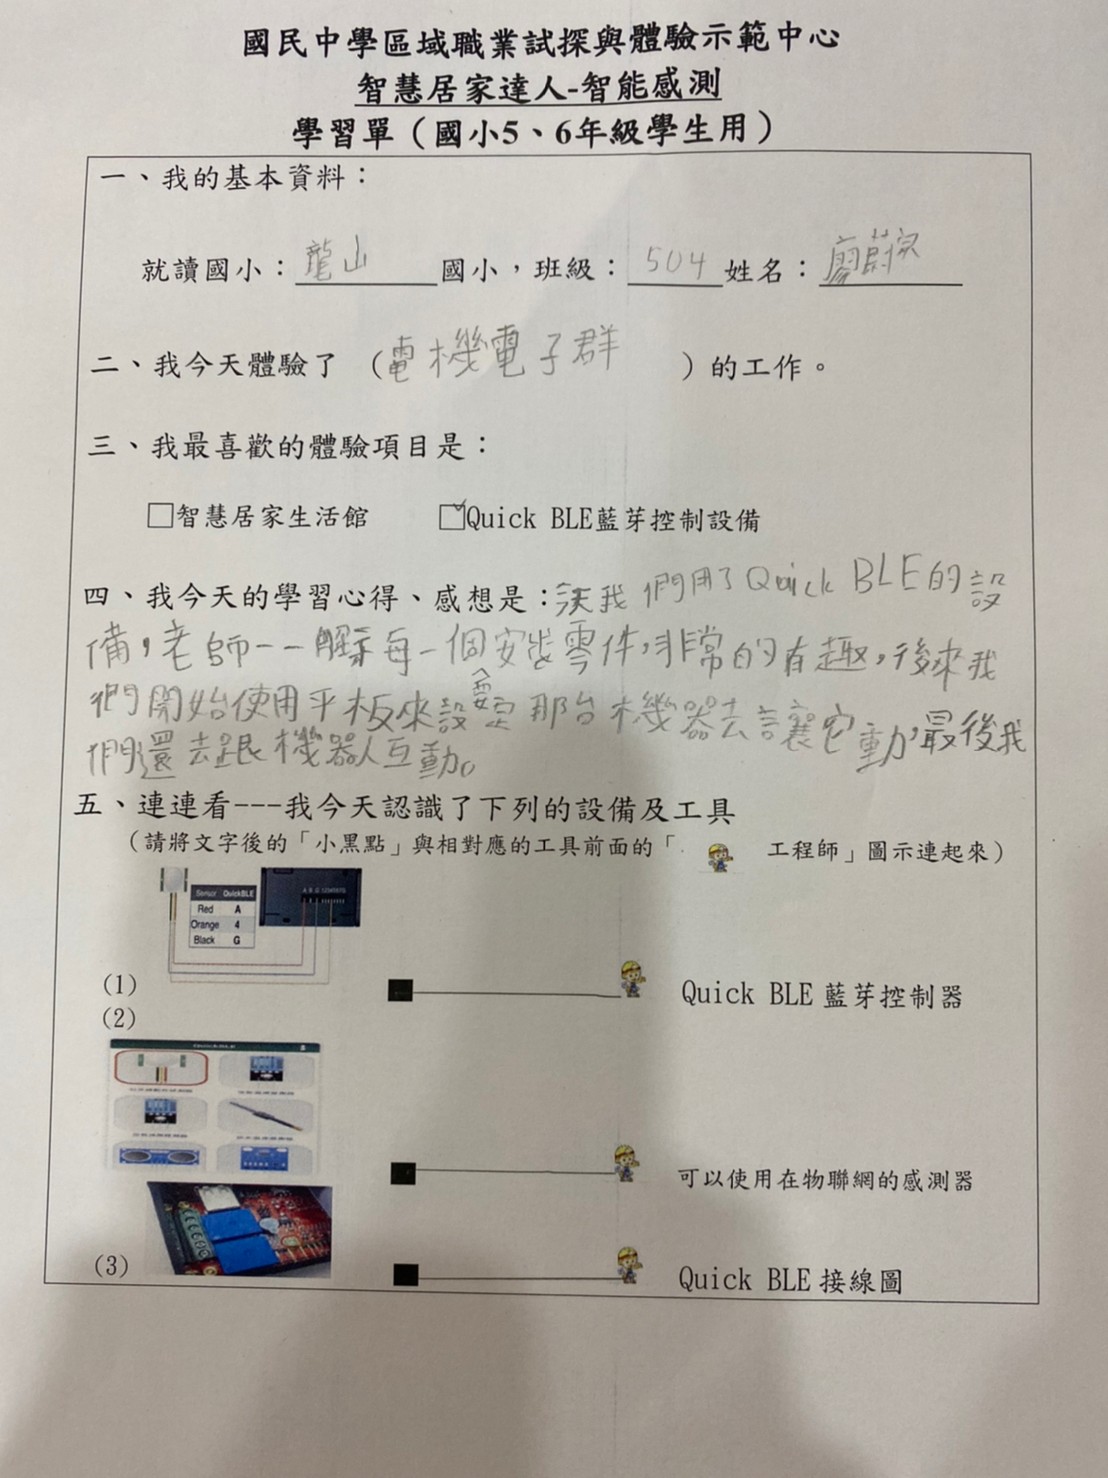 國民中學區域職業試探與體驗示範中心
智慧居家達人-智能感測
學習單（國小5、6年級學生用）
一、我的基本資料：
就讀國小：龍山國小，班級：504姓名：廖蔚
二、我今天體驗了（電機電子群）的工作。
三、我最喜歡的體驗項目是：
□智慧居家生活館 ☑Quick BLE藍芽控制設備
四、我今天的學習心得、感想是：我們用了Quick BLE的設
備，老師一一解每一個安裝零件，非常的有趣，後來我
們開始使用平板來設定那台機器去讓它動，最後我
們還去跟機器人互動。
五、連連看---我今天認識了下列的設備及工具
（請將文字後的「小黑點」與相對應的工具前面的「 工程師」圖示連起來）
Sensor QuickBLE
Red A
Orange 4
Black G
(1) Quick BLE 藍芽控制器
(2)
可以使用在物聯網的感測器
(3) Quick BLE 接線圖